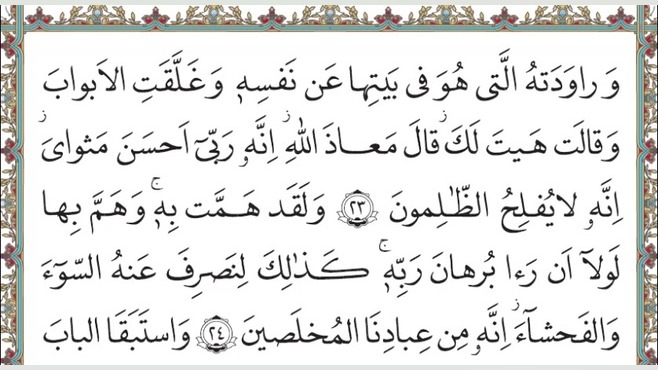 وَ راوَدَتهُ الَّتى هُوَ فى بَيتِها عَن نَفسِهٖ وَ غَلَّقَتِ الاَبوابَ
وَ قالَت هَيتَ لَكَ ۚ قالَ مَعاذَ اللّٰهِ ۖ اِنَّهٗ رَبّىٓ اَحسَنَ مَثواىَ ۖ
اِنَّهٗ لايُفلِحُ الظّٰلِمونَ ﴿٢٣﴾ وَ لَقَد هَمَّت بِهٖ ۖ وَ هَمَّ بِها
لَولآ اَن رَءا بُرهانَ رَبِّهٖ ۚ كَذٰلِكَ لِنَصرِفَ عَنهُ السّوٓءَ
وَ الفَحشآءَ ۚ اِنَّهٗ مِن عِبادِنَا المُخلَصينَ ﴿٢٤﴾ وَ استَبَقَا البابَ